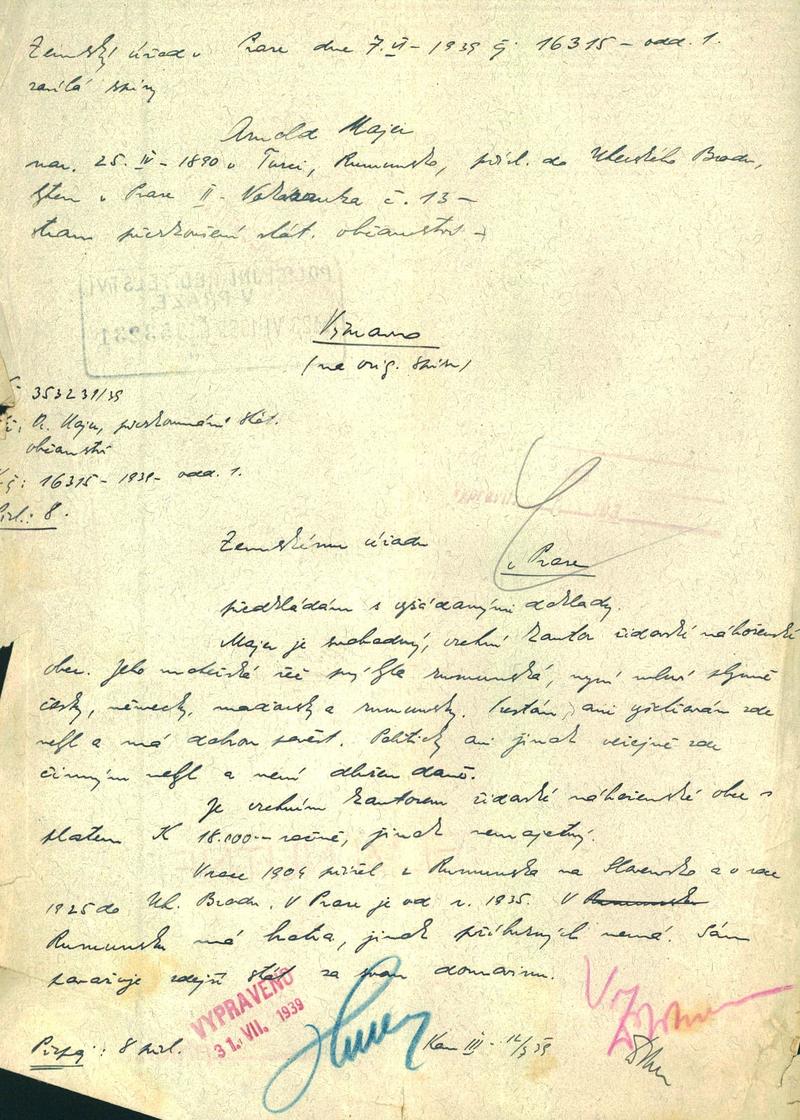 Zemský úřad v Praze dne 7. VI - 1939 č. 16315 - odd. 1.
zaslal spisy
Arnold Majer
nar. 25. IV - 1890 v Turci, Rumunsko, přísl. do Uherského Brodu,
bytem v Praze II - č. 13 -
stran přezkoušení stát. občanství -
POLICEJNÍ ŘEDITELSTVÍ
V PRAZE
353231
Vyřízeno
(na orig. spisu)
353231/39
A. Majer, přezkoumání stát.
občanství
16315 - 1939 - odd. 1.
Příl.: 8.
Zemskému úřadu
v Praze
předkládám s vyžádanými doklady.
Majer je svobodný, vrchní kantor židovské náboženské
obce. Jeho mateřská řeč byla rumunská, nyní mluví plynně
česky, německy, maďarsky a rumunsky. Trestán ani vyšetřován zde
nebyl a má dobrou pověst. Politicky ani jinak veřejně zde
činným nebyl a není dlužen daně.
Je vrchním kantorem židovské náboženské obce s
platem K 18.000 - ročně, jinak nemajetný.
V roce 1904 přišel z Rumunska na Slovensko a v roce
1925 do Uh. Brodu. V Praze je od r. 1935. V Rumunsku
Rumunsku má bratra, jinak příbuzných nemá. Sám
považuje zdejší stát za svou domovinu.
VYPRAVENO
31. VII. 1939
8 příl.
III -